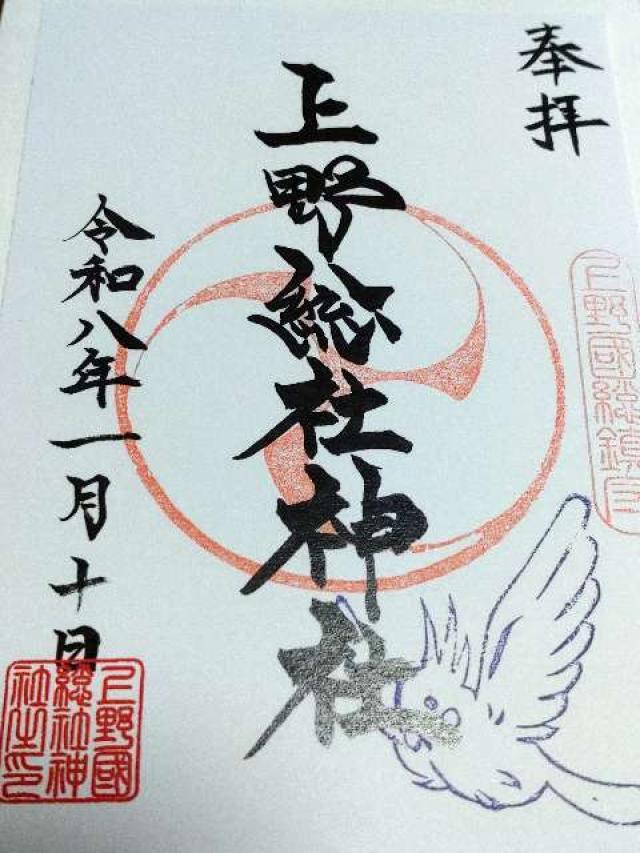 奉拝
上野國総鎮守
上野総社神社
令和八年一月十日
上野國総社神社之印